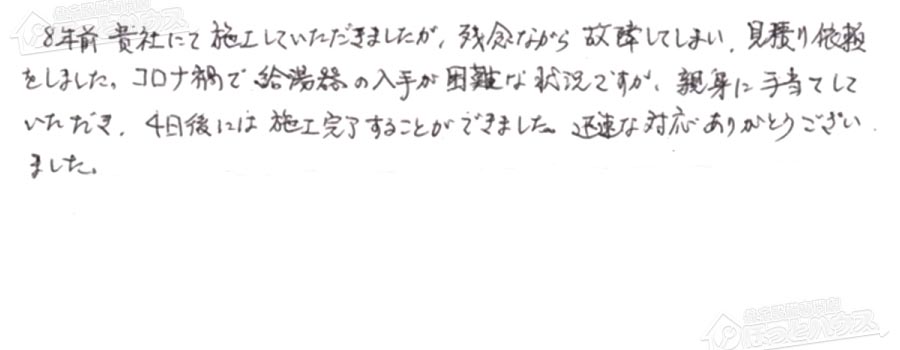 8年前貴社にて施工していただきましたが、残念ながら故障してしまい、見積り依頼
をしました。コロナ禍で給湯器の入手が困難な状況ですが、親身に手当てして
いただき、4日後には施工完了することができました。迅速な対応ありがとうござい
ました。
ほっとハウス